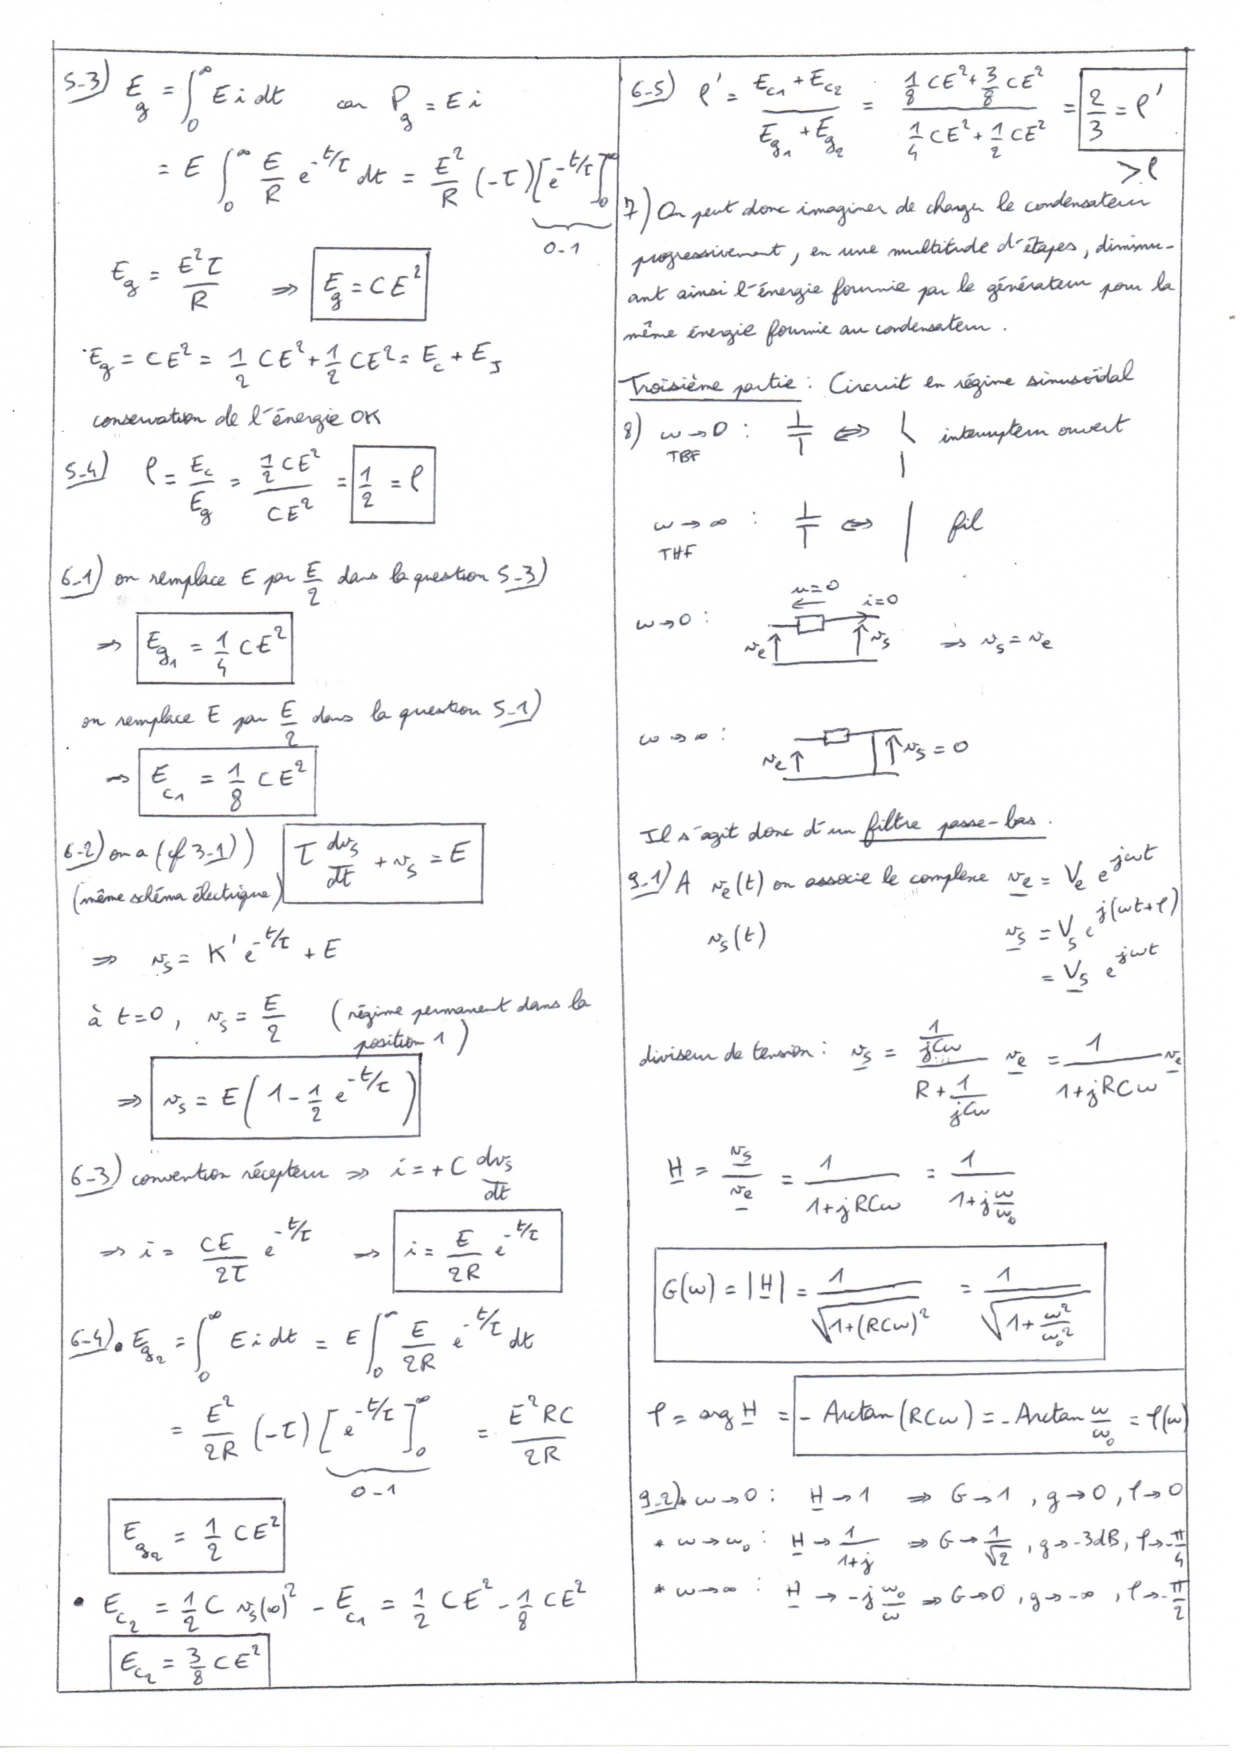 5-3) E_g = ∫_0^∞ E i dt car P_g = E i
= E ∫_0^∞ E/R e^{-t/τ} dt = E²/R (-τ) [e^{-t/τ}]_0^∞
0-1
E_g = E²τ/R ⇒ E_g = CE²
E_g = CE² = 1/2 CE² + 1/2 CE² = E_c + E_J
conservation de l'énergie OK
5-4) ρ = E_c/E_g = (1/2 CE²)/(CE²) = 1/2 = ρ
6-1) on remplace E par E/2 dans la question 5-3)
⇒ E_{g1} = 1/4 CE²
on remplace E par E/2 dans la question 5-1)
⇒ E_{c1} = 1/8 CE²
6-2) on a (cf 3-1)) τ dv_s/dt + v_s = E
(même schéma électrique)
⇒ v_s = K' e^{-t/τ} + E
à t=0, v_s = E/2 (régime permanent dans la
position 1)
⇒ v_s = E(1 - 1/2 e^{-t/τ})
6-3) convention récepteur ⇒ i = + C dv_s/dt
⇒ i = CE/2τ e^{-t/τ} ⇒ i = E/2R e^{-t/τ}
6-4) • E_{g2} = ∫_0^∞ E i dt = E ∫_0^∞ E/2R e^{-t/τ} dt
= E²/2R (-τ) [e^{-t/τ}]_0^∞ = E²RC/2R
0-1
E_{g2} = 1/2 CE²
• E_{c2} = 1/2 C v_s(∞)² - E_{c1} = 1/2 CE² - 1/8 CE²
E_{c2} = 3/8 CE²
6-5) ρ' = (E_{c1} + E_{c2})/(E_{g1} + E_{g2}) = (1/8 CE² + 3/8 CE²)/(1/4 CE² + 1/2 CE²) = 2/3 = ρ'
>ρ
7) On peut donc imaginer de charger le condensateur
progressivement, en une multitude d'étapes, diminu-
ant ainsi l'énergie fournie par le générateur pour la
même énergie fournie au condensateur.
Troisième partie : Circuit en régime sinusoïdal
8) ω→0 : ⇔ interrupteur ouvert
TBF
ω→∞ : ⇔ fil
THF
u=0
ω→0 : i=0
v_e v_s ⇒ v_s = v_e
ω→∞ : v_e v_s = 0
Il s'agit donc d'un filtre passe-bas.
9-1) A v_e(t) on associe le complexe v_e = V_e e^{jωt}
v_s(t) v_s = V_s e^{j(ωt+φ)}
= V_s e^{jωt}
diviseur de tension : v_s = (1/jCω)/(R + 1/jCω) v_e = 1/(1+jRCω) v_e
H = v_s/v_e = 1/(1+jRCω) = 1/(1+j ω/ω_0)
G(ω) = |H| = 1/√(1+(RCω)²) = 1/√(1+ω²/ω_0²)
φ = arg H = - Arctan(RCω) = - Arctan ω/ω_0 = φ(ω)
9-2) * ω→0 : H→1 ⇒ G→1, g→0, φ→0
* ω→ω_0 : H→ 1/(1+j) ⇒ G→ 1/√2, g→ -3dB, φ→ -π/4
* ω→∞ : H→ -j ω_0/ω ⇒ G→0, g→ -∞, φ→ -π/2